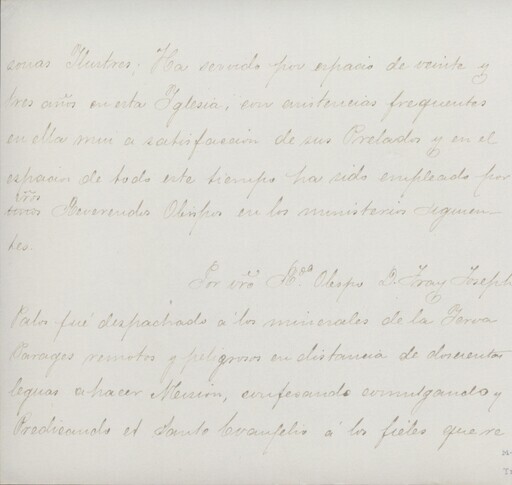 sonas Ilustres; Ha servido por espacio de veinte y
tres años en esta Iglesia, con asistencias frequentes
en ella mui a satisfaccion de sus Prelados y en el
espacio de todo este tiempo ha sido empleado por
vrõs
Reverendos Obispos en los ministerios siguien-
tes.
Por vrõ R.do Obispo D. Fray Joseph
Palos fué despachado á los minerales de la
Parages remotos y peligrosos en distancia de doscientas
leguas a hacer Mission, confesando comulgando y
Predicando el Santo Evangelio á los fieles que re